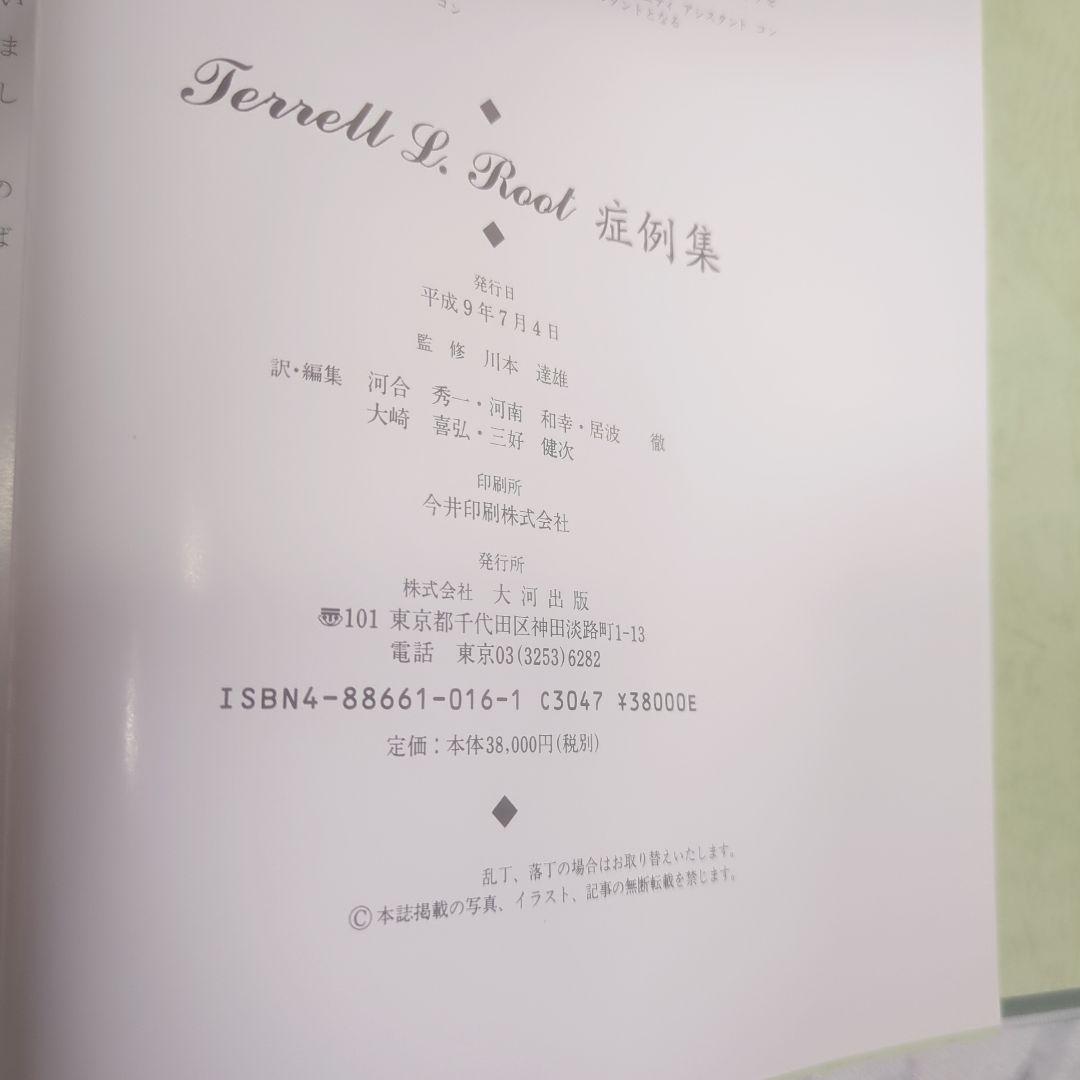 い
ま
し
の
ば
コン
ディ アシスタント コン
タントとなる
Terrell L. Root 症例集
発行日
平成9年7月4日
監 修 川本 達雄
訳・編集 河合 秀一・河南 和幸・居波 徹
大崎 喜弘・三好 健次
印刷所
今井印刷株式会社
発行所
株式会社 大河出版
〠101 東京都千代田区神田淡路町1-13
電話 東京03(3253)6282
ISBN4-88661-016-1 C3047 ¥38000E
定価：本体38,000円(税別)
乱丁、落丁の場合はお取り替えいたします。
Ⓒ本誌掲載の写真、イラスト、記事の無断転載を禁じます。